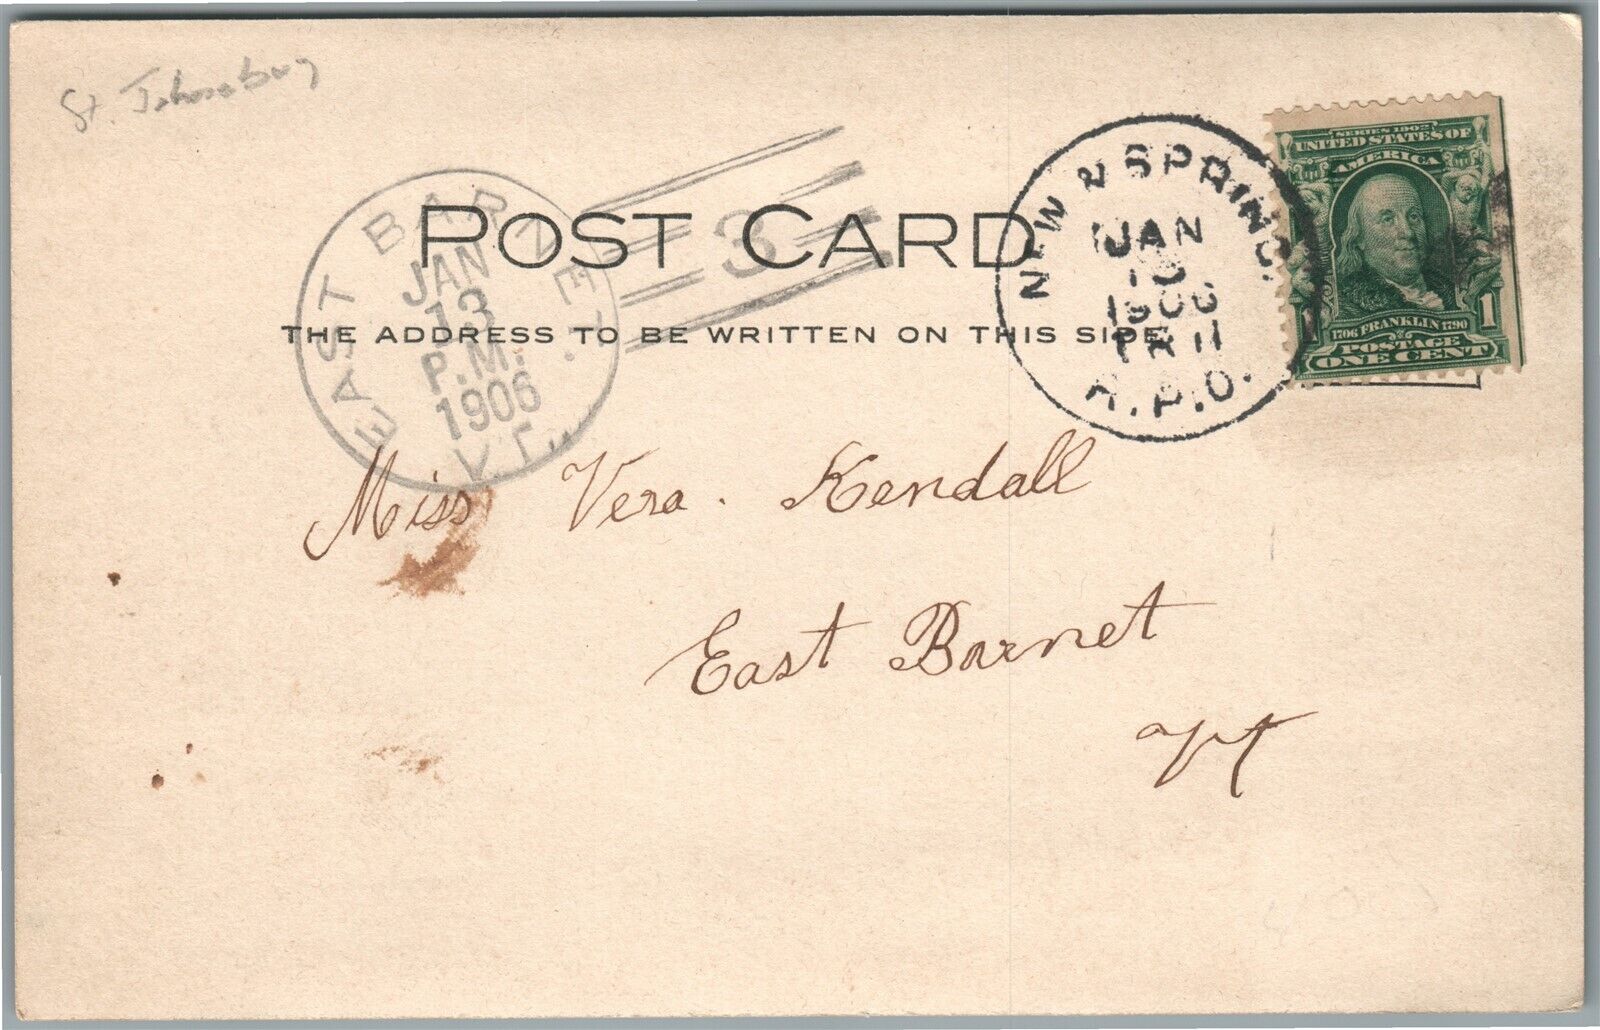 St. Johnsbury
SERIES 1902
UNITED STATES OF
AMERICA
1706 FRANKLIN 1790
POSTAGE
ONE CENT
1
NEW & SPRING.
JAN
13
1906
TR 11
R.P.O.
EAST BARNET.
JAN
13
P.M.
1906
VT.
3
POST CARD
THE ADDRESS TO BE WRITTEN ON THIS SIDE
Miss Vera. Kendall
East Barnet
Vt